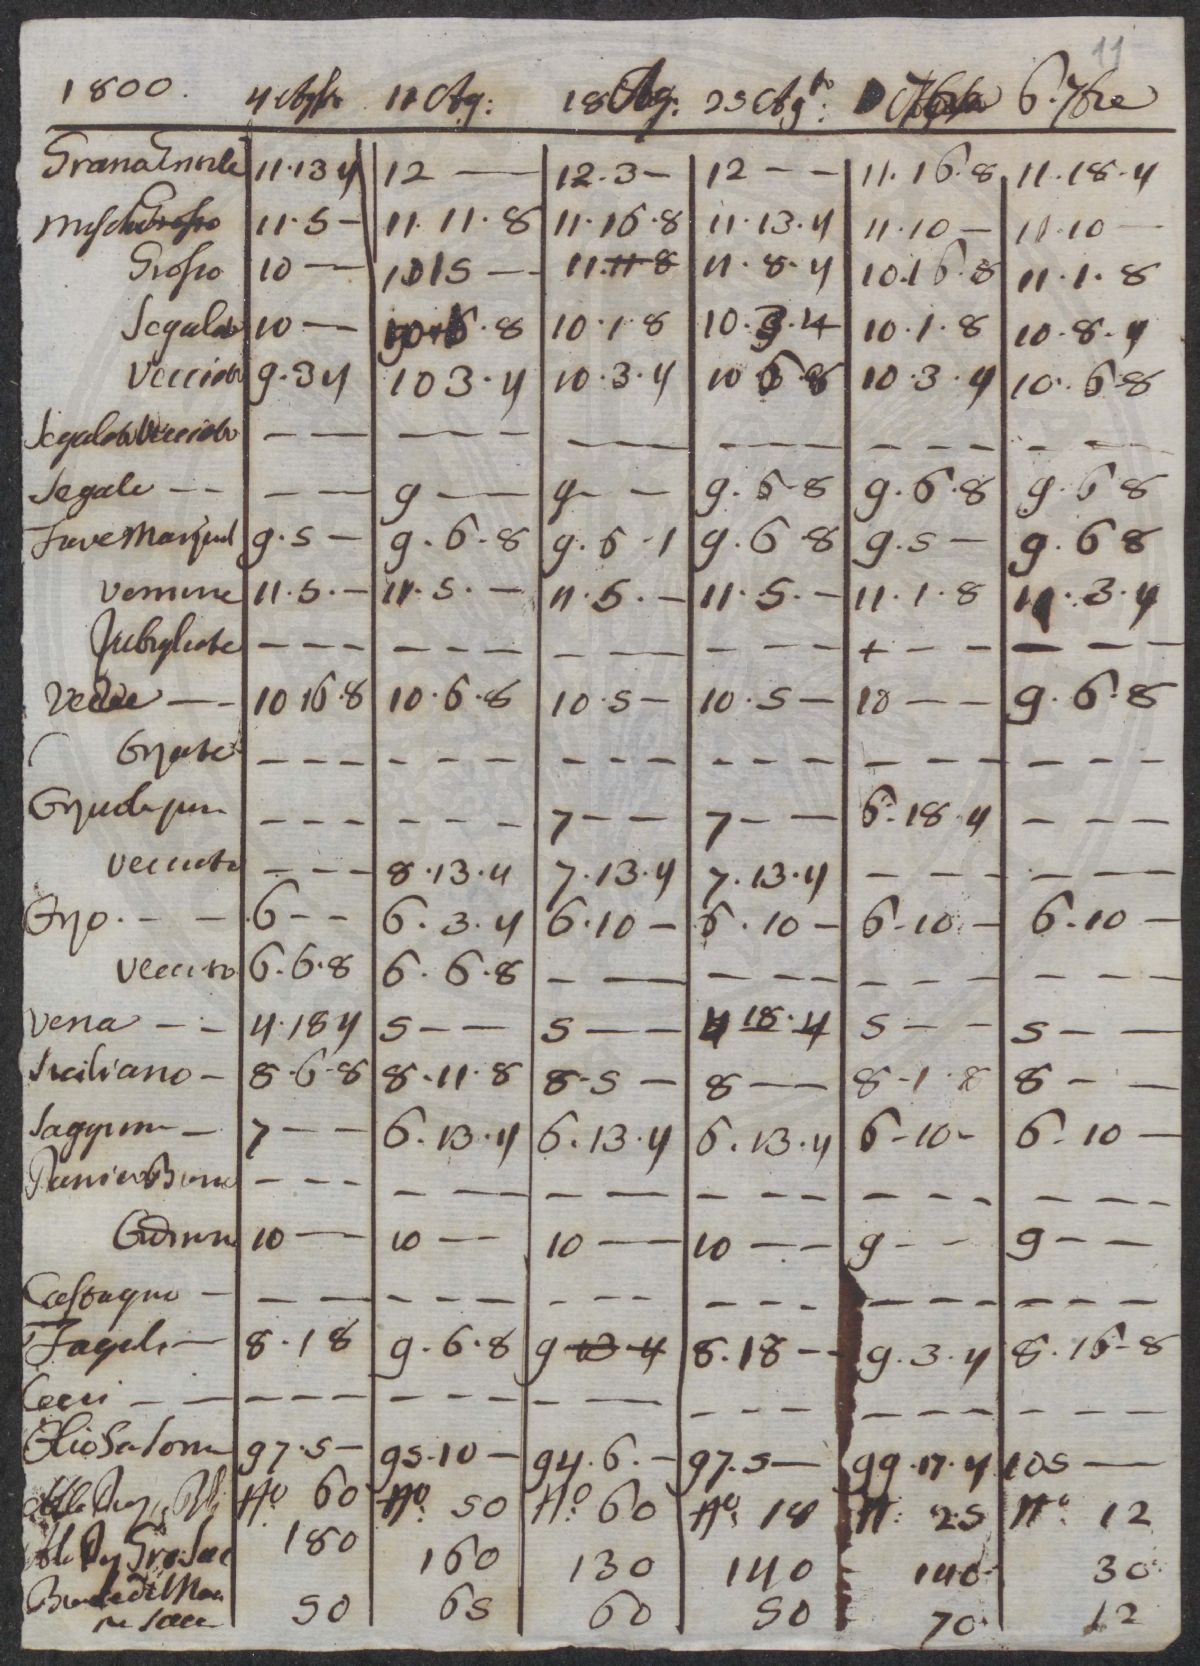 11
1800. 4 Agto 11 Ag: 18 Ag. 25 Agto: 6. 7bre
Grana Gentile 11.13 4 12 — 12.3 – 12 – – 11.16.8 11.18.4
11.5 – 11.11.8 11.16.8 11.13.4 11.10 – 11.10 —
Grosso 10 — 10 15 — 11.11 8 11.8.4 10.16.8 11.1.8
Segalato 10 — 10.16.8 10.1.8 10.3.4 10.1.8 10.8.4
Vecciato 9.3 4 10 3.4 10.3.4 10 6.8 10.3.4 10.6 8
Segalato Vecciato — — — — — — — — — — — — – – – – – —
Segale – – – – — 9 — 9 – – 9.6 8 9.6.8 9.6 8
Fave 9.5 – 9.6.8 9.6.1 9.6 8 9.5 – 9.6 8
Vernine 11.5.– 11.5.– 11.5.– 11.5.– 11.1.8 11.3.4
– – – – – – – – – – – – + – – – – –
Vecce — – 10 16.8 10.6.8 10.5 – 10.5 – 10 – – 9.6.8
Orzate – – – – – – – – – – – – – – – – – –
– – – – – – 7 – – 7 – – 6.18.4 – – –
Vecciato – – – 8.13.4 7.13.4 7.13.4 – – – – – –
Orzo. – – 6 – – 6.3.4 6.10 – 6.10 – 6.10 – 6.10 –
Vecciato 6.6.8 6.6.8 – — – – – – – – – – –
Vena – – 4.18 4 5 – – 5 – – 4 18.4 5 – – 5 – –
Siciliano – 8.6.8 8.11.8 8.5 – 8 – – 8.1.8 8 – –
Saggina – 7 – – 6.13.4 6.13.4 6.13.4 6.10 – 6.10 –
– – – – — – — – – – – – – – – –
10 — 10 – – 10 — 10 – – 9 – – 9 – –
Castagne – – – – – – – – – – – – – – – – – – –
Fagioli – 8.18 9.6.8 9 13 4 8.18 – 9.3.4 8.16.8
Ceci – – – – – – – – – — – – – – – – – – –
Olio la Soma 97.5 – 95.10 – 94.6.– 97.5 – 99.17.4 105 —
No 60 No. 50 No. 60 No. 18 N: 25 No 12
180 160 130 140 140 30
50 65 60 50 70 12